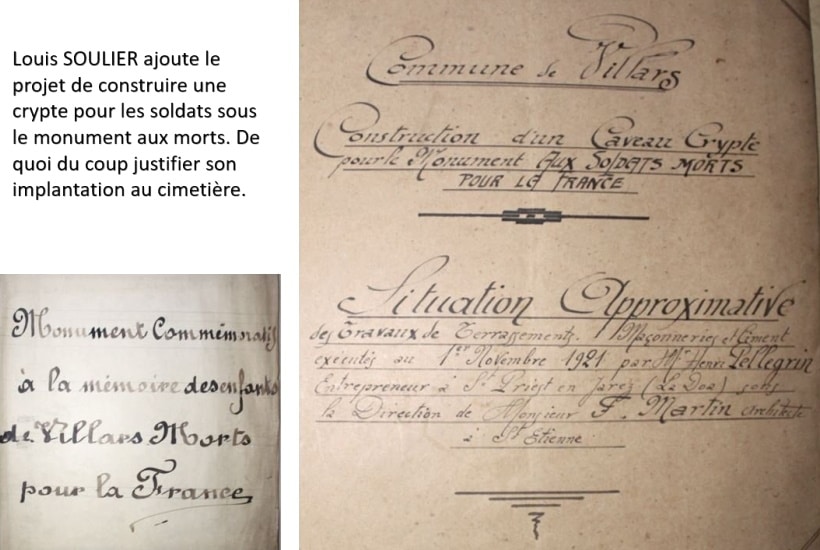 Louis SOULIER ajoute le
projet de construire une
crypte pour les soldats sous
le monument aux morts. De
quoi du coup justifier son
implantation au cimetière.
Monument Commémoratif
à la mémoire des enfants
de Villars Morts
pour la France
Commune de Villars
Construction d'un Caveau Crypte
pour le Monument AUX SOLDATS MORTS
POUR LA FRANCE
Situation Approximative
des Travaux de Terrassements. Maçonneries et Ciment
exécutés au 1er Novembre 1921 par Mr Henri Pellegrin
Entrepreneur à St Priest en Jarez (La Doa) sous
la Direction de Monsieur F. Martin architecte
à St Etienne